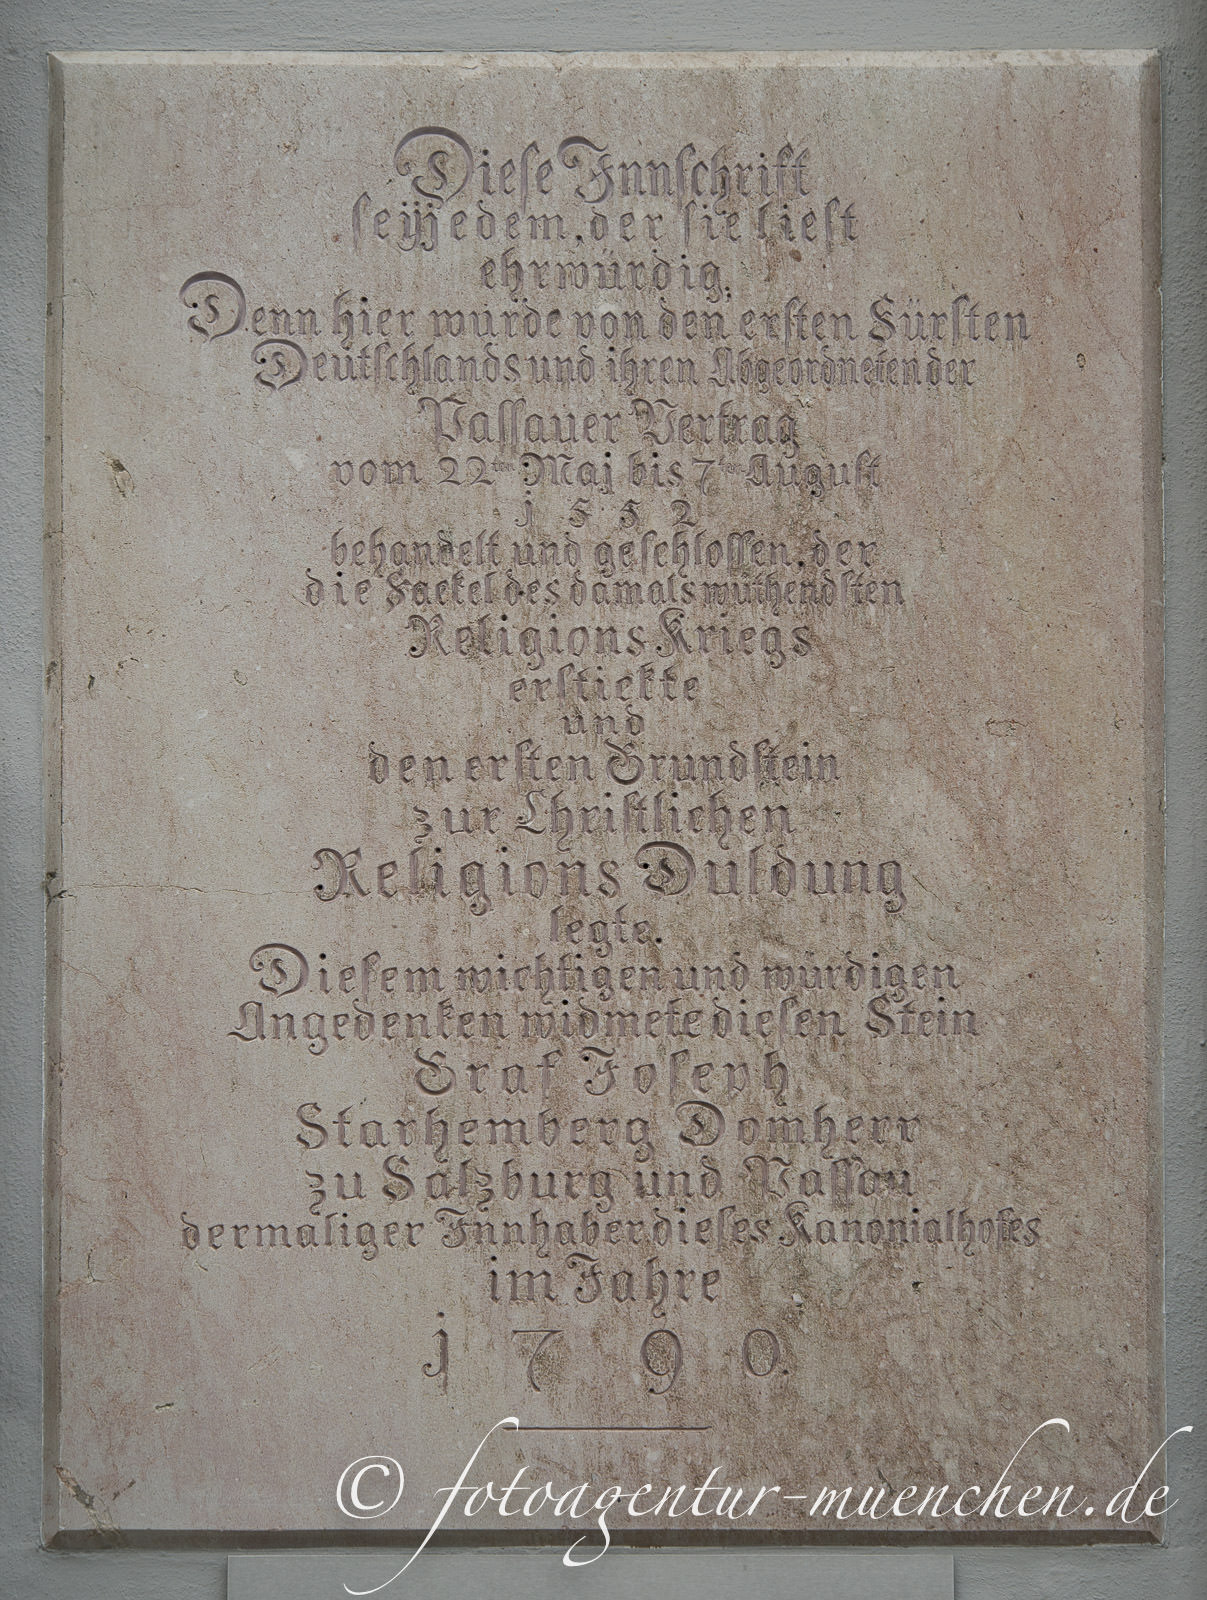 Diese Innschrift
seÿ jedem, der sie liest
ehrwürdig,
Denn hier wurde von den ersten Fürsten
Deutschlands und ihren Abgeordneten der
Passauer Vertrag
vom 22ten Maj bis 7ten August
j 5 5 2
behandelt und geschlossen, der
die Fackel des damals wüthendsten
Religions Kriegs
erstickte
und
den ersten Grundstein
zur Christlichen
Religions Duldung
legte.
Diesem wichtigen und würdigen
Angedenken widmete diesen Stein
Graf Joseph
Starhemberg Domherr
zu Salzburg und Passau
dermaliger Innhaber dieses Kanonialhofes
im Jahre
j 7 9 0
© fotoagentur-muenchen.de